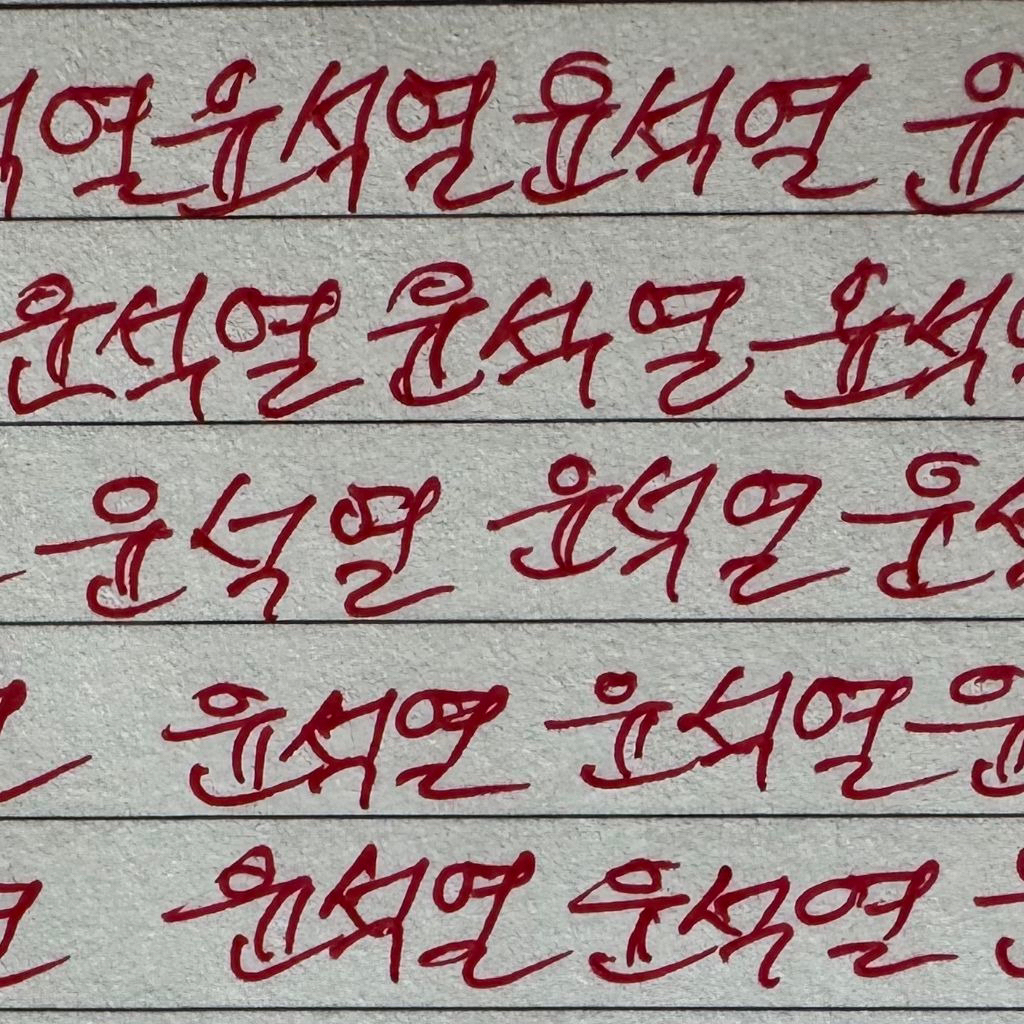 석열윤석열윤석열 윤
윤석열 윤석열 윤석
윤석열 윤석열 윤
윤석열 윤석열 윤
윤석열 윤석열